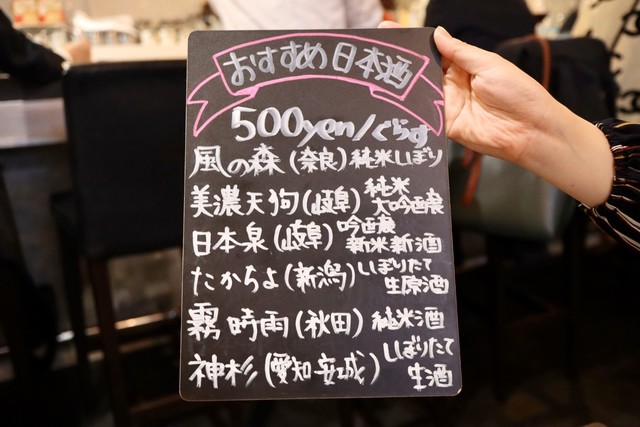 おすすめ日本酒
500yen/ぐらす
風の森(奈良)純米しぼり
美濃天狗(岐阜)純米大吟醸
日本泉(岐阜)吟醸新米新酒
たかちよ(新潟)しぼりたて生原酒
霧時雨(秋田)純米酒
神杉(愛知・安城)しぼりたて生酒